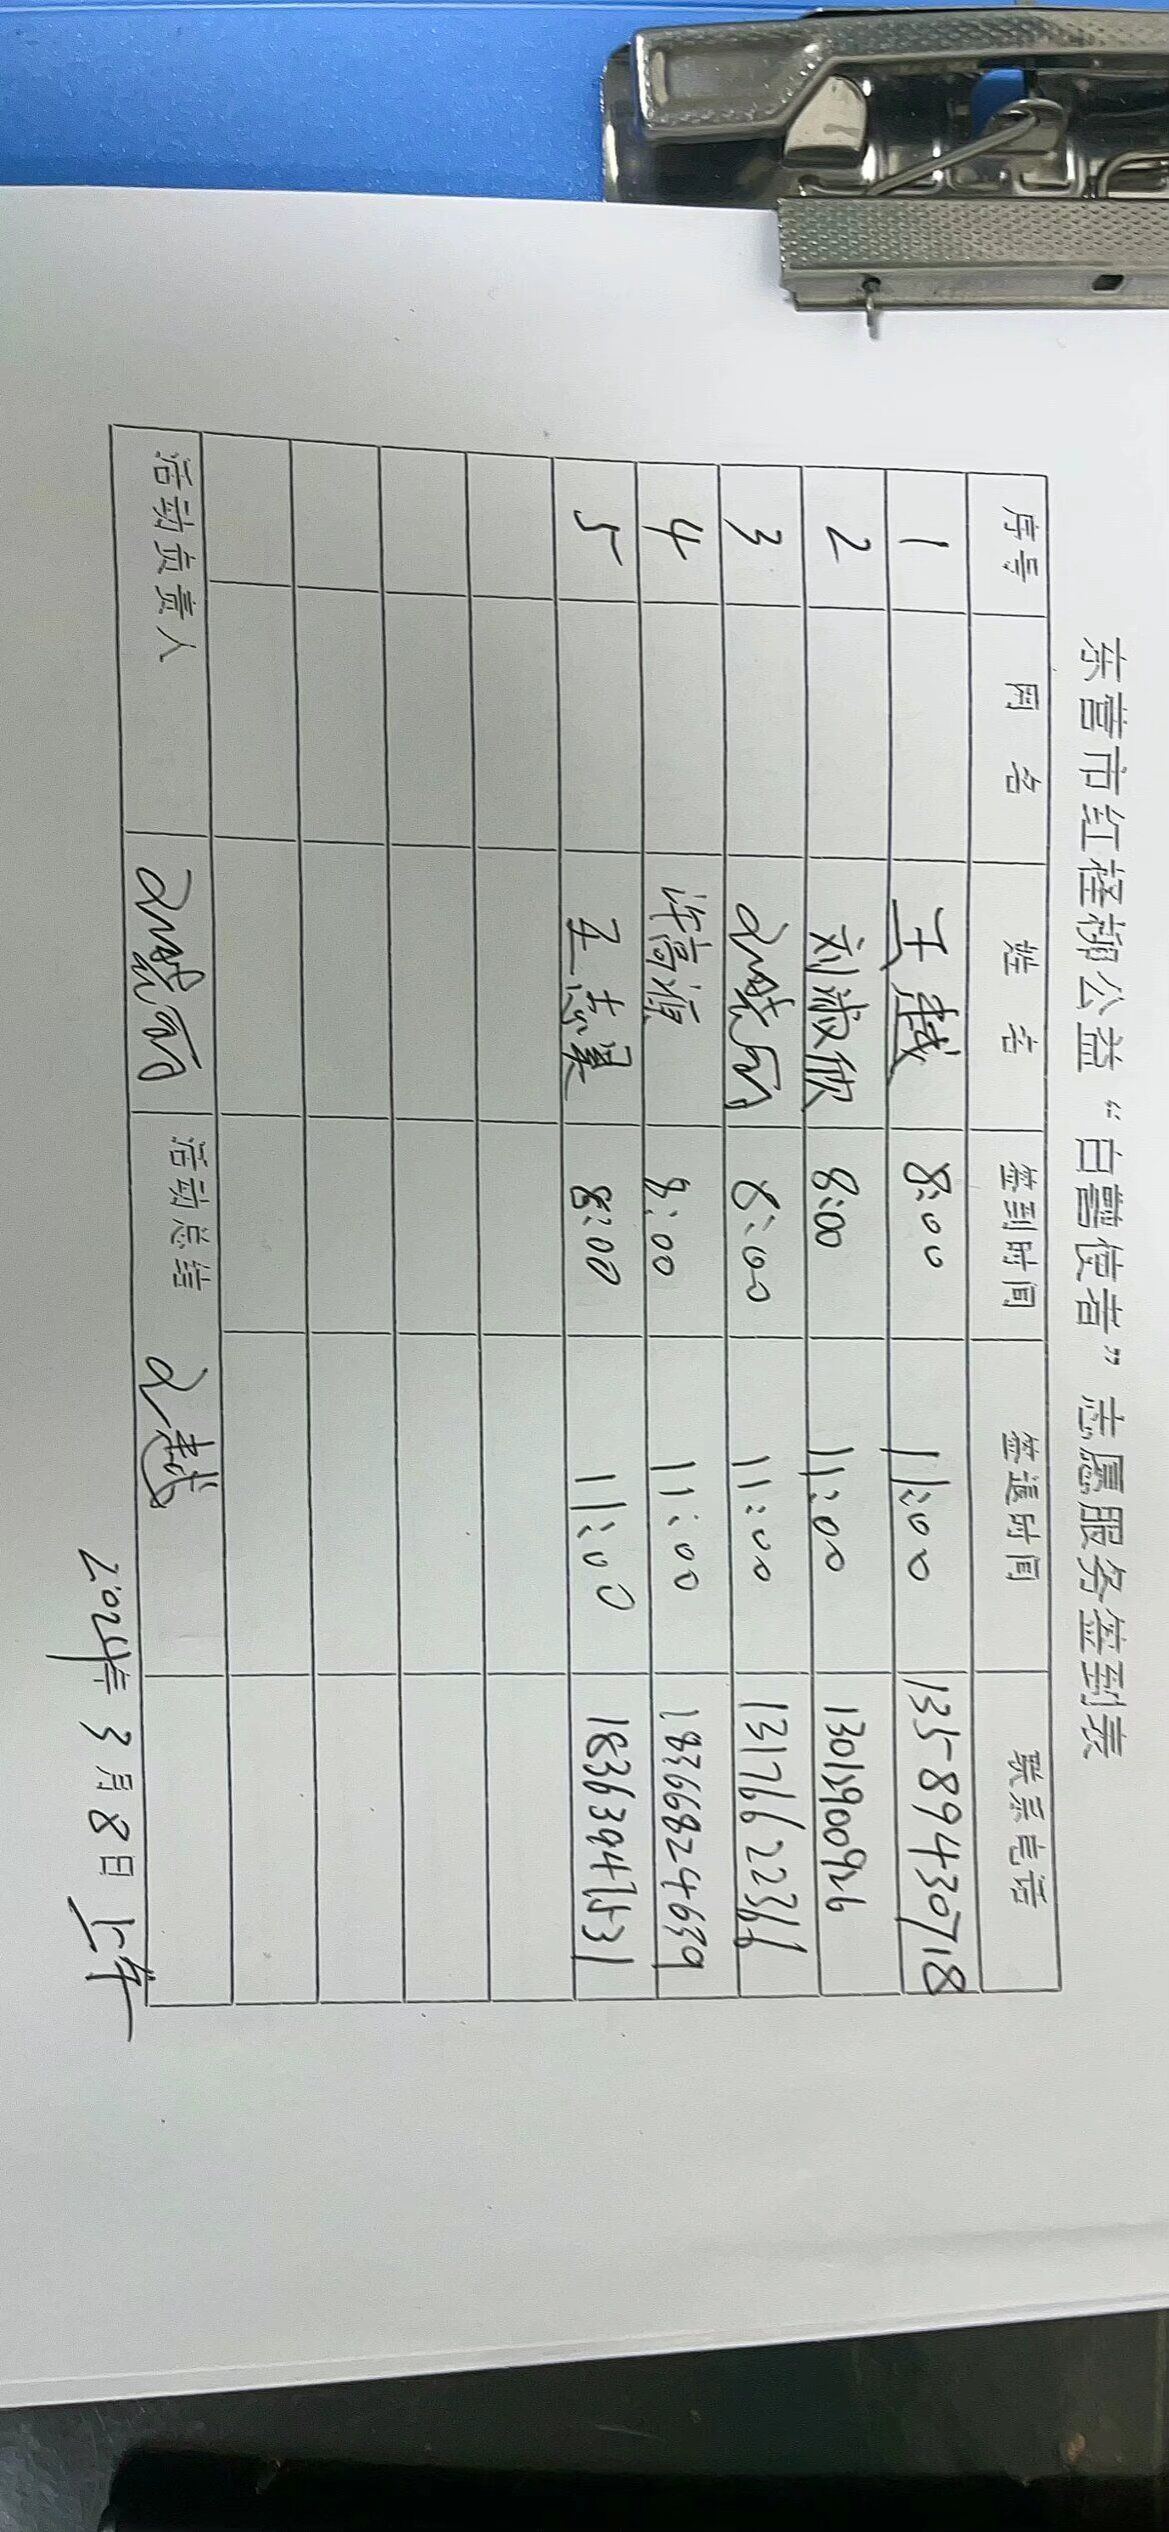 东营市红柽柳公益“白鹭使者”志愿服务签到表
序号 网名 姓名 签到时间 签退时间 联系电话
1 王越 8:00 11:00 13589430718
2 刘淑欣 8:00 11:00 13019900926
3 8:00 11:00 13176622366
4 许高源 8:00 11:00 18366824639
5 王志昊 8:00 11:00 18363947531
活动负责人 活动总结 王越
2024年3月8日上午